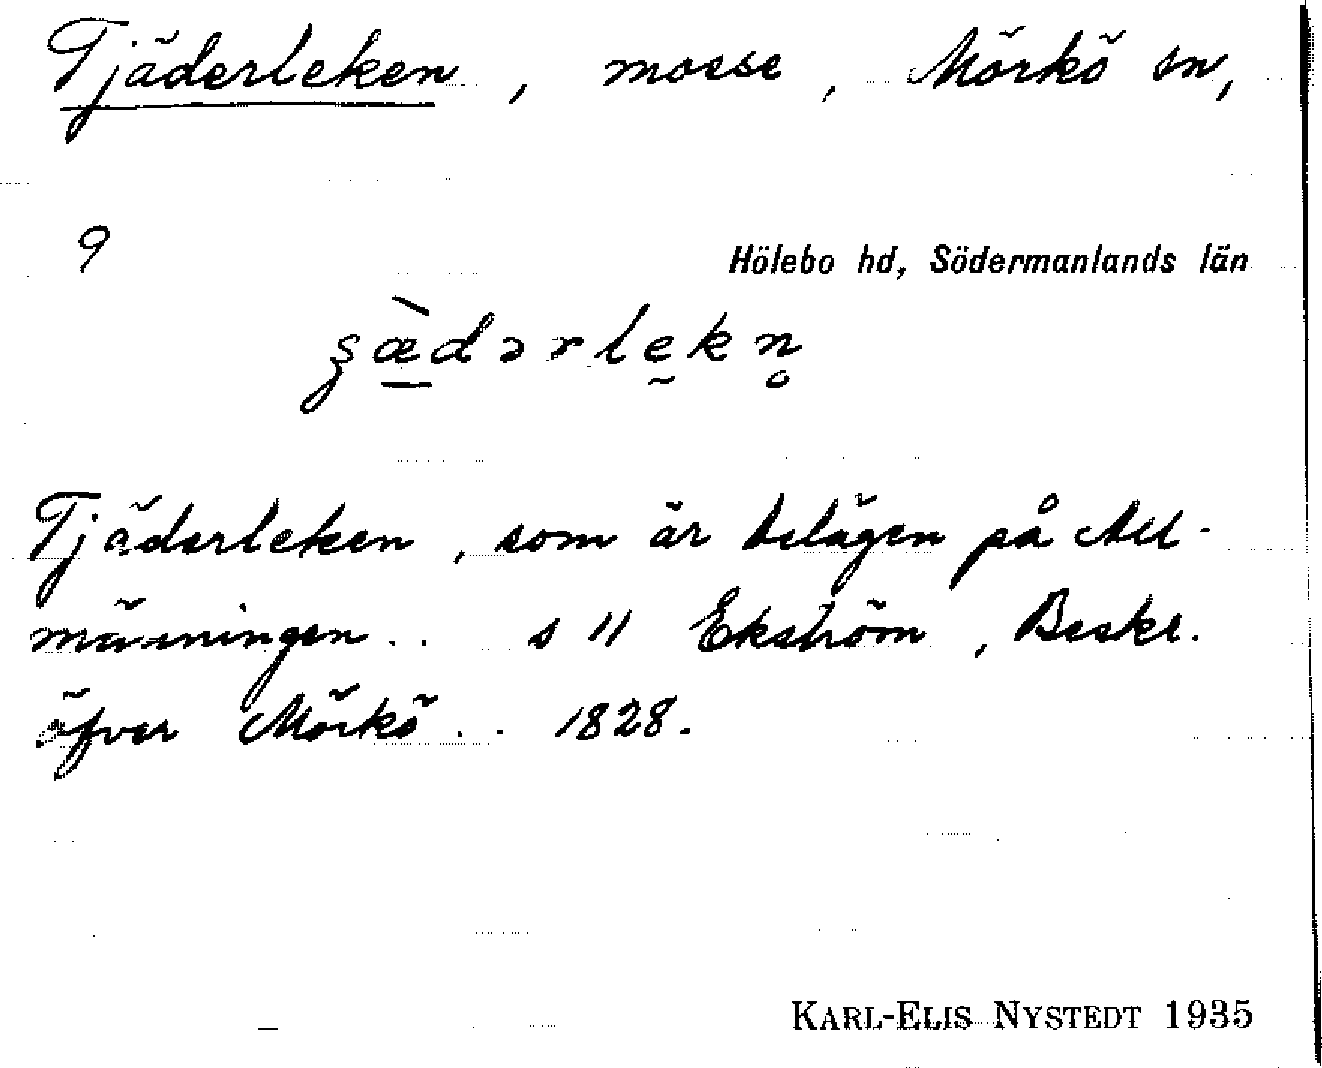 Tjäderleken, mosse, Mörkö sn,
9
Hölebo hd, Södermanlands län
Tjäderleken, som är belägen på All-
männingen.. s 11 Ekström, Beskr.
öfver Mörkö.. 1828.
KARL-ELIS NYSTEDT 1935